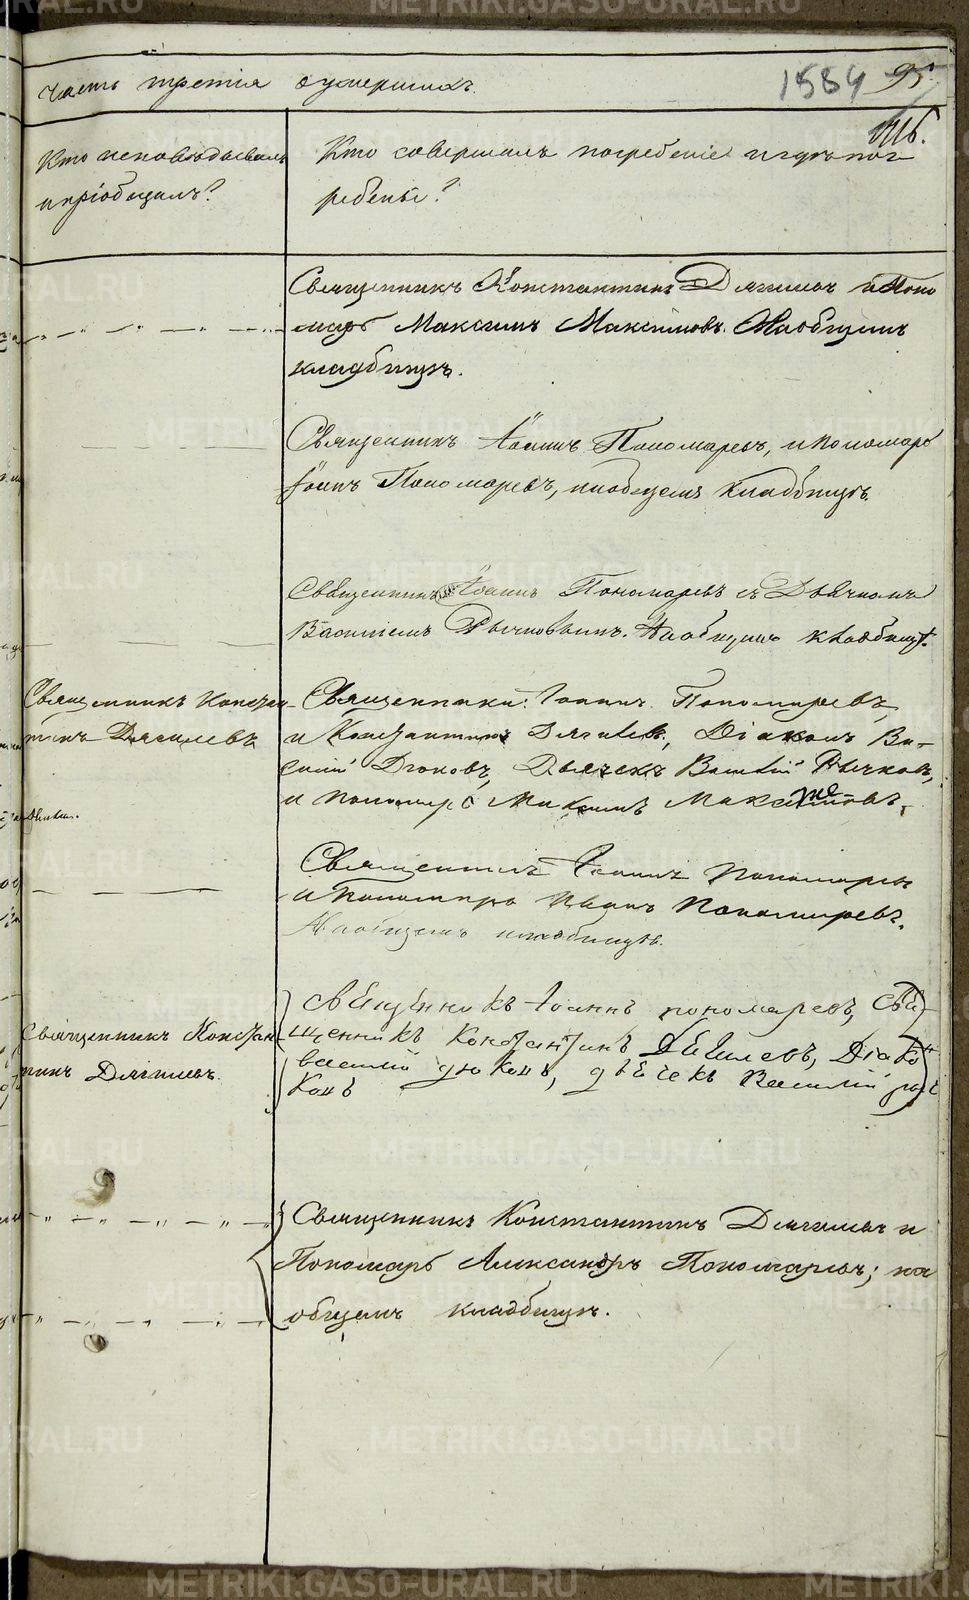 часть третія оумершихъ. 1584 95.
Кто исповѣдывалъ
и пріобщалъ?
Кто совершалъ погребеніе и гдѣ пог
ребены?
Священникъ Константинъ Дягилевъ и Поно
марь Максимъ Максимовъ. На общемъ
кладбищѣ.
Священникъ Іоаннъ Пономаревъ, и пономарь
Іоаннъ Пономаревъ, на общемъ кладбищѣ.
Священникъ Іоаннъ Пономаревъ съ Дьячкомъ
Василіемъ Рычковымъ. На общемъ кладбищѣ.
Священникъ Констан
тинъ Дягилевъ
Священники: Іоаннъ Пономаревъ,
и Константинъ Дягилевъ, Діаконъ Ва-
силій Дюковъ, Дьячекъ Василій Рычковъ,
и пономарь Максимъ Максимовъ.
Священникъ Іоаннъ Пономаревъ
и Пономарь Иванъ Пономаревъ.
На общемъ кладбищѣ.
Священникъ Констан
тинъ Дягилевъ.
Священикъ Іоаннъ пономаревъ, Свя
щенникъ Константинъ Дягилевъ, Діако
василій дюковъ, дьячекъ Василій
Священникъ Константинъ Дягилевъ и
Пономарь Александръ Пономаревъ; на
общемъ кладбищѣ.
METRIKI.GASO-URAL.RU